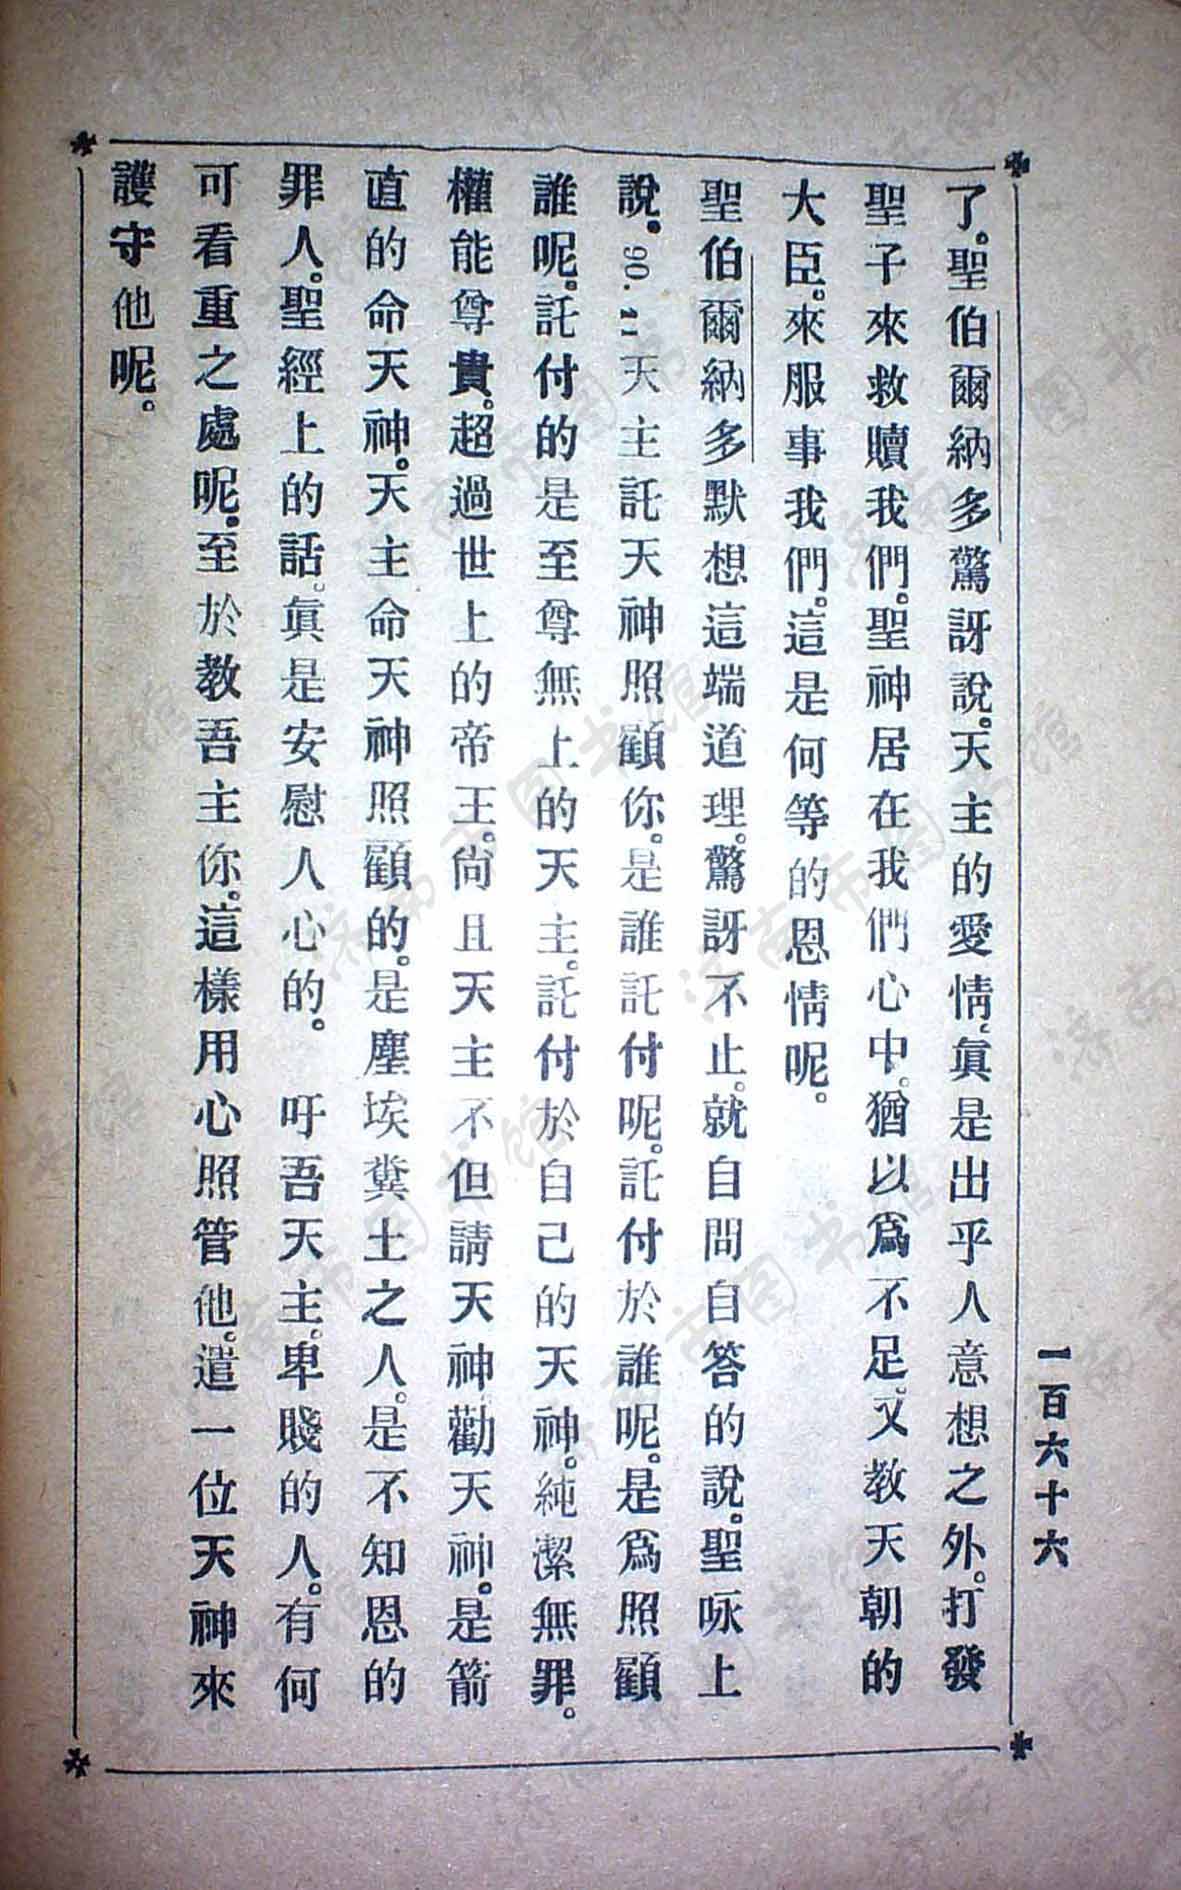 一百六十六
了。聖伯爾納多驚訝說。天主的愛情、眞是出乎人意想之外。打發
聖子來救贖我們。聖神居在我們心中。猶以爲不足。又教天朝的
大臣。來服事我們。這是何等的恩情呢。
聖伯爾納多默想這端道理。驚訝不止。就自問自答的說。聖咏上
說。90.11天主託天神照顧你。是誰託付呢。託付於誰呢。是爲照顧
誰呢。託付的是至尊無上的天主。託付於自己的天神。純潔無罪。
權能尊貴。超過世上的帝王。尙且天主不但請天神、勸天神。是箭
直的命天神。天主命天神照顧的。是塵埃糞土之人。是不知恩的
罪人。聖經上的話。眞是安慰人心的。 吁吾天主。卑賤的人。有何
可看重之處呢。至於教吾主你。這樣用心照管他。遣一位天神來
護守他呢。
濟南市图书馆